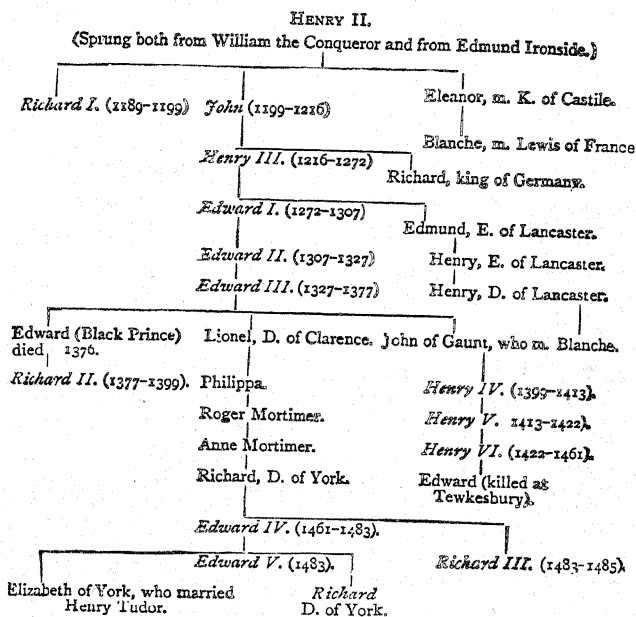 HENRY II.
(Sprung both from William the Conqueror and from Edmund Ironside.)
Richard I. (1189-1199) John (1199-1216) Eleanor, m. K. of Castile.
Blanche, m. Lewis of France
Henry III. (1216-1272)
Richard, king of Germany.
Edward I. (1272-1307)
Edmund, E. of Lancaster.
Edward II. (1307-1327) Henry, E. of Lancaster.
Edward III. (1327-1377) Henry, D. of Lancaster.
Edward (Black Prince) Lionel, D. of Clarence. John of Gaunt, who m. Blanche.
died 1376.
Richard II. (1377-1399). Philippa. Henry IV. (1399-1413).
Roger Mortimer. Henry V. 1413-1422).
Anne Mortimer. Henry VI. (1422-1461).
Richard, D. of York. Edward (killed at
Tewkesbury).
Edward IV. (1461-1483).
Edward V. (1483). Richard III. (1483-1485).
Elizabeth of York, who married Richard
Henry Tudor. D. of York.